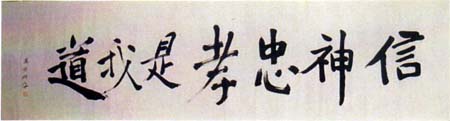 信神忠孝是我道